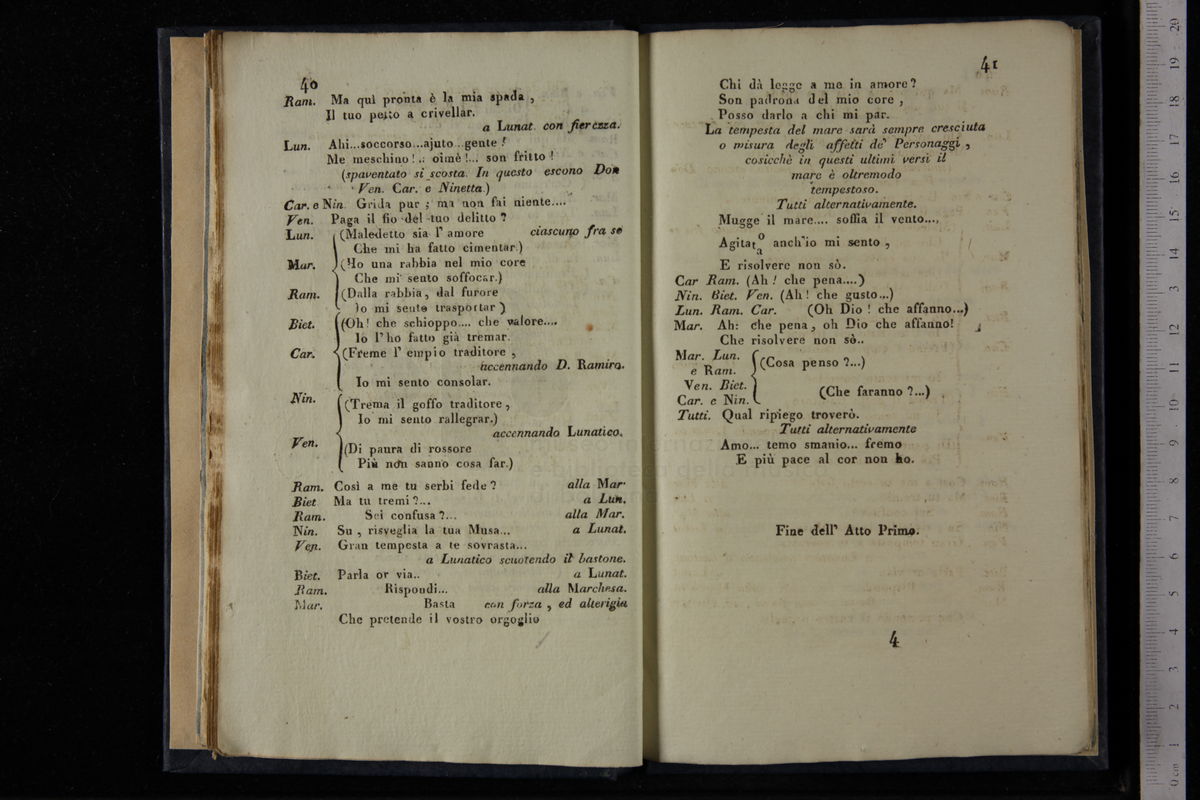 40
Ram. Ma quì pronta è la mia spada ,
Il tuo petto a crivellar.
a Lunat. con fierezza.
Lun. Ahi...soccorso...ajuto...gente !
Me meschino !.: oimè !... son fritto !
(spaventato si scosta. In questo escono Don
Ven. Car. e Ninetta.)
Car. e Nin. Grida pur ; ma non fai niente....
Ven. Paga il fio del tuo delitto ?
Lun. (Maledetto sia l' amore ciascuno fra se
Che mi ha fatto cimentar.)
Mar. (Ho una rabbia nel mio core
Che mi sento soffocar.)
Ram. (Dalla rabbia, dal furore
Io mi sento trasportar )
Biet. (Oh! che schioppo.... che valore....
Io l' ho fatto già tremar.
Car. (Freme l' empio traditore ,
accennando D. Ramiro.
Io mi sento consolar.
Nin. (Trema il goffo traditore,
Io mi sento rallegrar.)
accennando Lunatico.
Ven. (Di paura di rossore
Più non sanno cosa far.)
Ram. Così a me tu serbi fede ? alla Mar.
Biet Ma tu tremi ?... a Lun.
Ram. Sei confusa ?... alla Mar.
Nin. Su , risveglia la tua Musa... a Lunat.
Ven. Gran tempesta a te sovrasta...
a Lunatico scuotendo il bastone.
Biet. Parla or via.. a Lunat.
Ram. Rispondi... alla Marchesa.
Mar. Basta con forza , ed alterigia
Che pretende il vostro orgoglio
41
Chi dà legge a me in amore ?
Son padrona del mio core ,
Posso darlo a chi mi par.
La tempesta del mare sarà sempre cresciuta
o misura degli affetti de' Personaggi ,
cosicchè in questi ultimi versi il
mare è oltremodo
tempestoso.
Tutti alternativamente.
Mugge il mare.... soffia il vento....
Agitat o/a anch'io mi sento ,
E risolvere non sò.
Car Ram. (Ah ! che pena....)
Nin. Biet. Ven. (Ah ! che gusto...)
Lun. Ram. Car. (Oh Dio ! che affanno...)
Mar. Ah: che pena , oh Dio che affanno!
Che risolvere non sò..
Mar. Lun.
e Ram. (Cosa penso ?...)
Ven. Biet.
Car. e Nin. (Che faranno ?...)
Tutti. Qual ripiego troverò.
Tutti alternativamente
Amo... temo smanio... fremo
E più pace al cor non ho.
Fine dell' Atto Primo.
4
0 cm 1 2 3 4 5 6 7 8 9 10 11 12 13 14 15 16 17 18 19 20